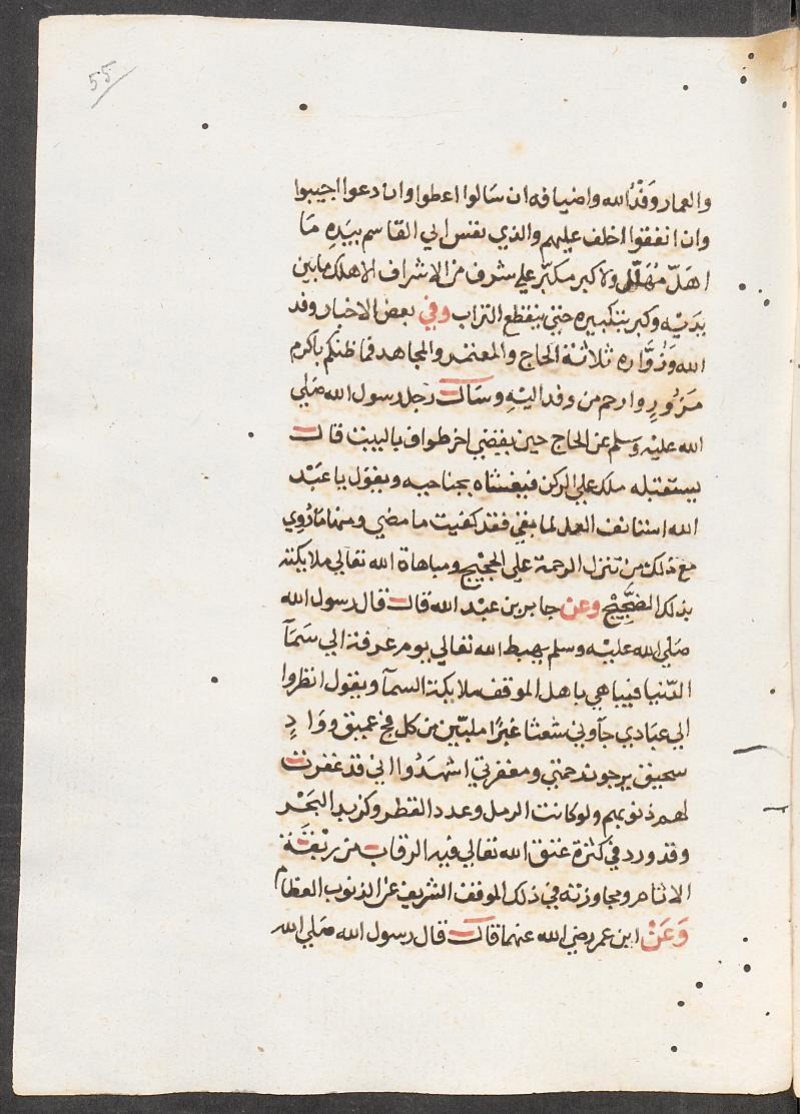 55
والعمار وَفْدُ الله واضيافه ان سَالوا اعطوا وان دعوا اجيبوا
وان انفقوا اخلف عليهم والذي نفس ابي القاسم بيَدِهِ مَا
اهَلّ مُهَلِّل ولا كبر مكبّر علي شرف من الاشراف الا هلك مابين
يدَيْه وكبر بتكبيره حتي ينقطع التراب وفي بعض الاخبار وفد
الله وَزُوَّاره ثلاثة الحاج والمعتمر والمجاهد فما ظنكم باكرم
مَزُورٍ وارحم من وفد اليْهِ وسَال رجل رسول الله صَلي
الله عليْه وَسلم عن الحاج حين يقضي اخر طواف بالبيت قال
يستقبله ملك علي الركن فيغشاه بجناحيه ويقول يا عَبْد
الله استانف العمل لما بقي فقد كفيت ما مضي ومنها مَا رُوِي
مع ذلك من تنزل الرحمة علي الحجيْج ومباهاة الله تعالي ملايكته
بذلك الضَّجِيْج وعن جابر بن عبْد الله قال قال رسول الله
صَلي الله عليْه وسلم يهبط الله تعالي يوم عرفة الي سَمَآ
الدّنيا فيباهي باهل الموقف ملايكة السمآ ويقول انظروا
الي عبَادي جآوني شعثا غبْرًا ملبّين من كل فج عميق ووَادٍ
سحيق يرجون رحمتي ومغفرتي اشهَدُوا اني قد غفرت
لهم ذنوبهم ولو كانت الرمل وعدد القطر وكزبد البَحْر
وقد ورد في كثرة عتق الله تعالي فيه الرقاب من ربْقَة
الاثام ومجاوزته في ذلك الموقف الشريف عن الذنوب العظام
وَعَنْ ابن عمر رضي الله عنهما قال قال رسول الله صَلي الله